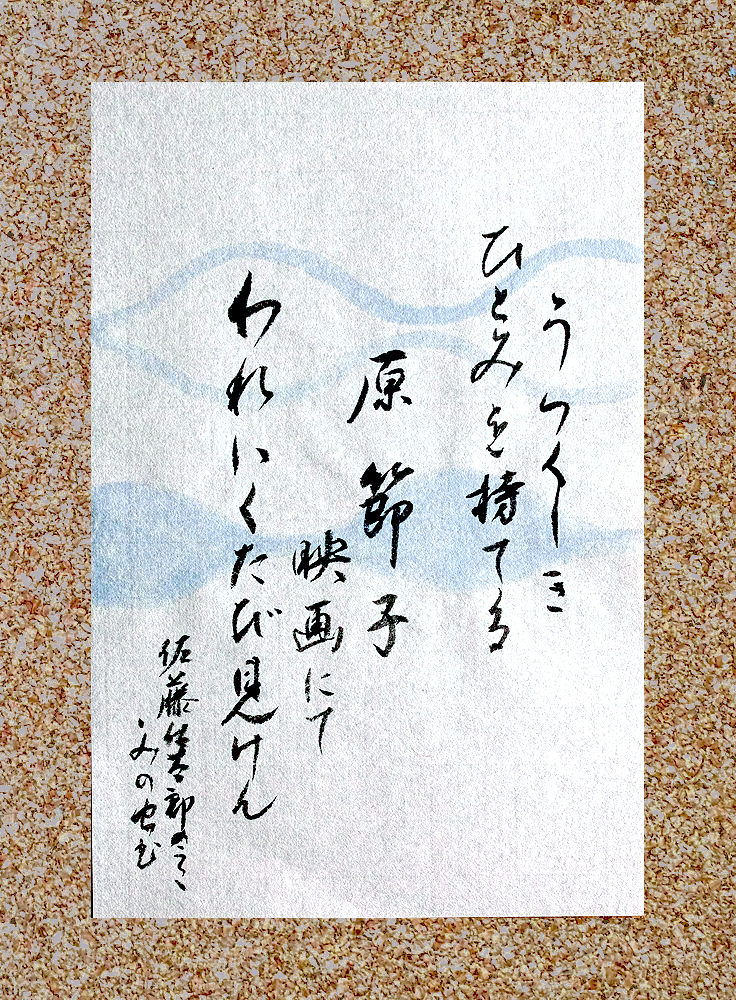 うつくしき
ひとみを持てる
原節子
映画にて
われいくたび見けん
佐藤佐太郎のうた
みの虫書